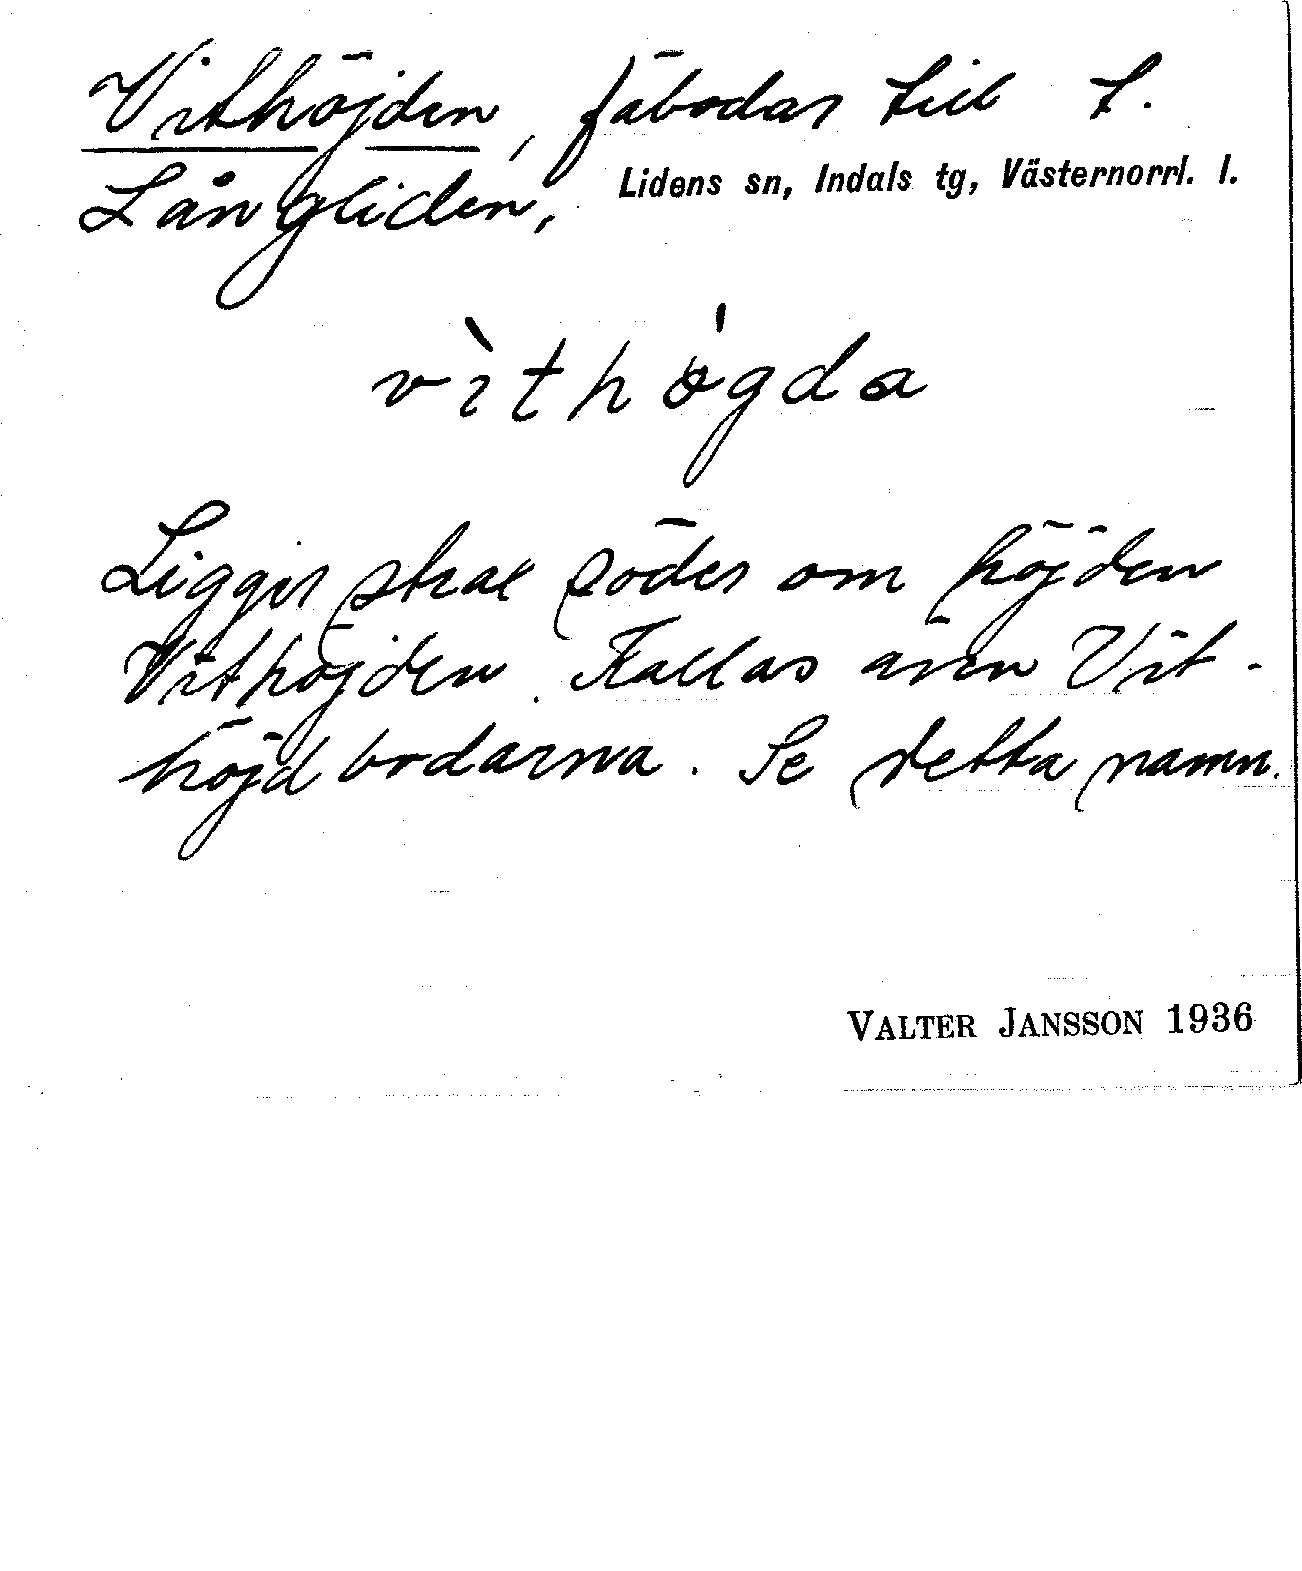 Vithöjden, fäbodar till t.
Långliden, Lidens sn, Indals tg, Västernorrl. l.
vìthǿgda
Ligger strax söder om höjden
Vithöjden. Kallas även Vit-
höjdbodarna. Se detta namn.
VALTER JANSSON 1936